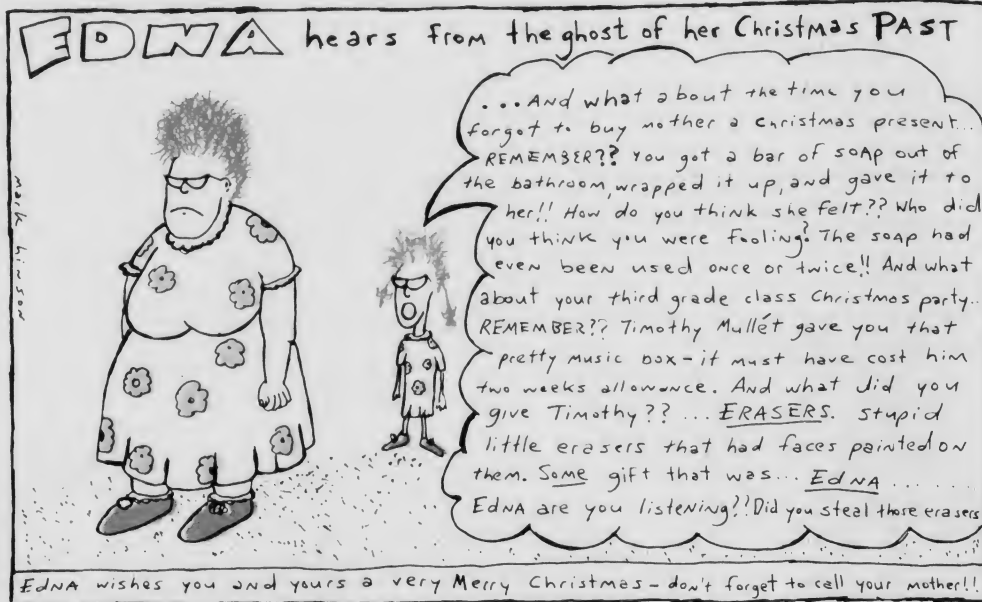 EDNA hears from the ghost of her Christmas PAST
...And what about the time you
forgot to buy mother a christmas present...
REMEMBER?? You got a bar of soap out of
the bathroom, wrapped it up, and gave it to
her!! How do you think she felt?? Who did
you think you were fooling? The soap had
even been used once or twice!! And what
about your third grade class Christmas party..
REMEMBER?? Timothy Mullét gave you that
pretty music box - it must have cost him
two weeks allowance. And what did you
give Timothy?? ... ERASERS. stupid
little erasers that had faces painted on
them. Some gift that was... EdNA .......
EdNA are you listening?? Did you steal those erasers
mark hinson
EdNA wishes you and yours a very Merry Christmas - don't forget to call your mother!!